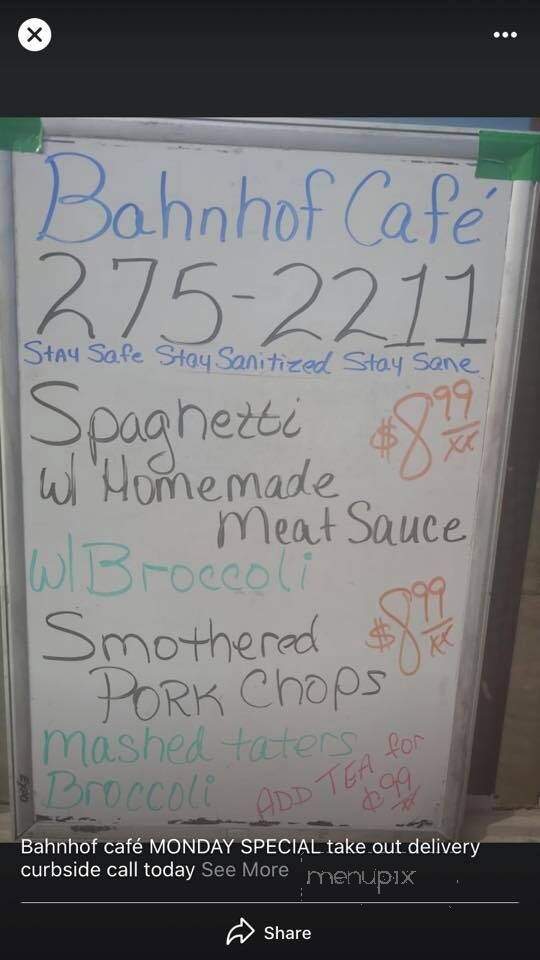 Bahnhof Café
275-2211
Stay Safe Stay Sanitized Stay Sane
Spaghetti $8.99
xx
w/ Homemade
Meat Sauce
w/ Broccoli
Smothered $8.99
xx
PORK Chops
mashed taters
Broccoli
ADD TEA for
¢99
Bahnhof café MONDAY SPECIAL take out delivery
curbside call today See More
menupix
Share